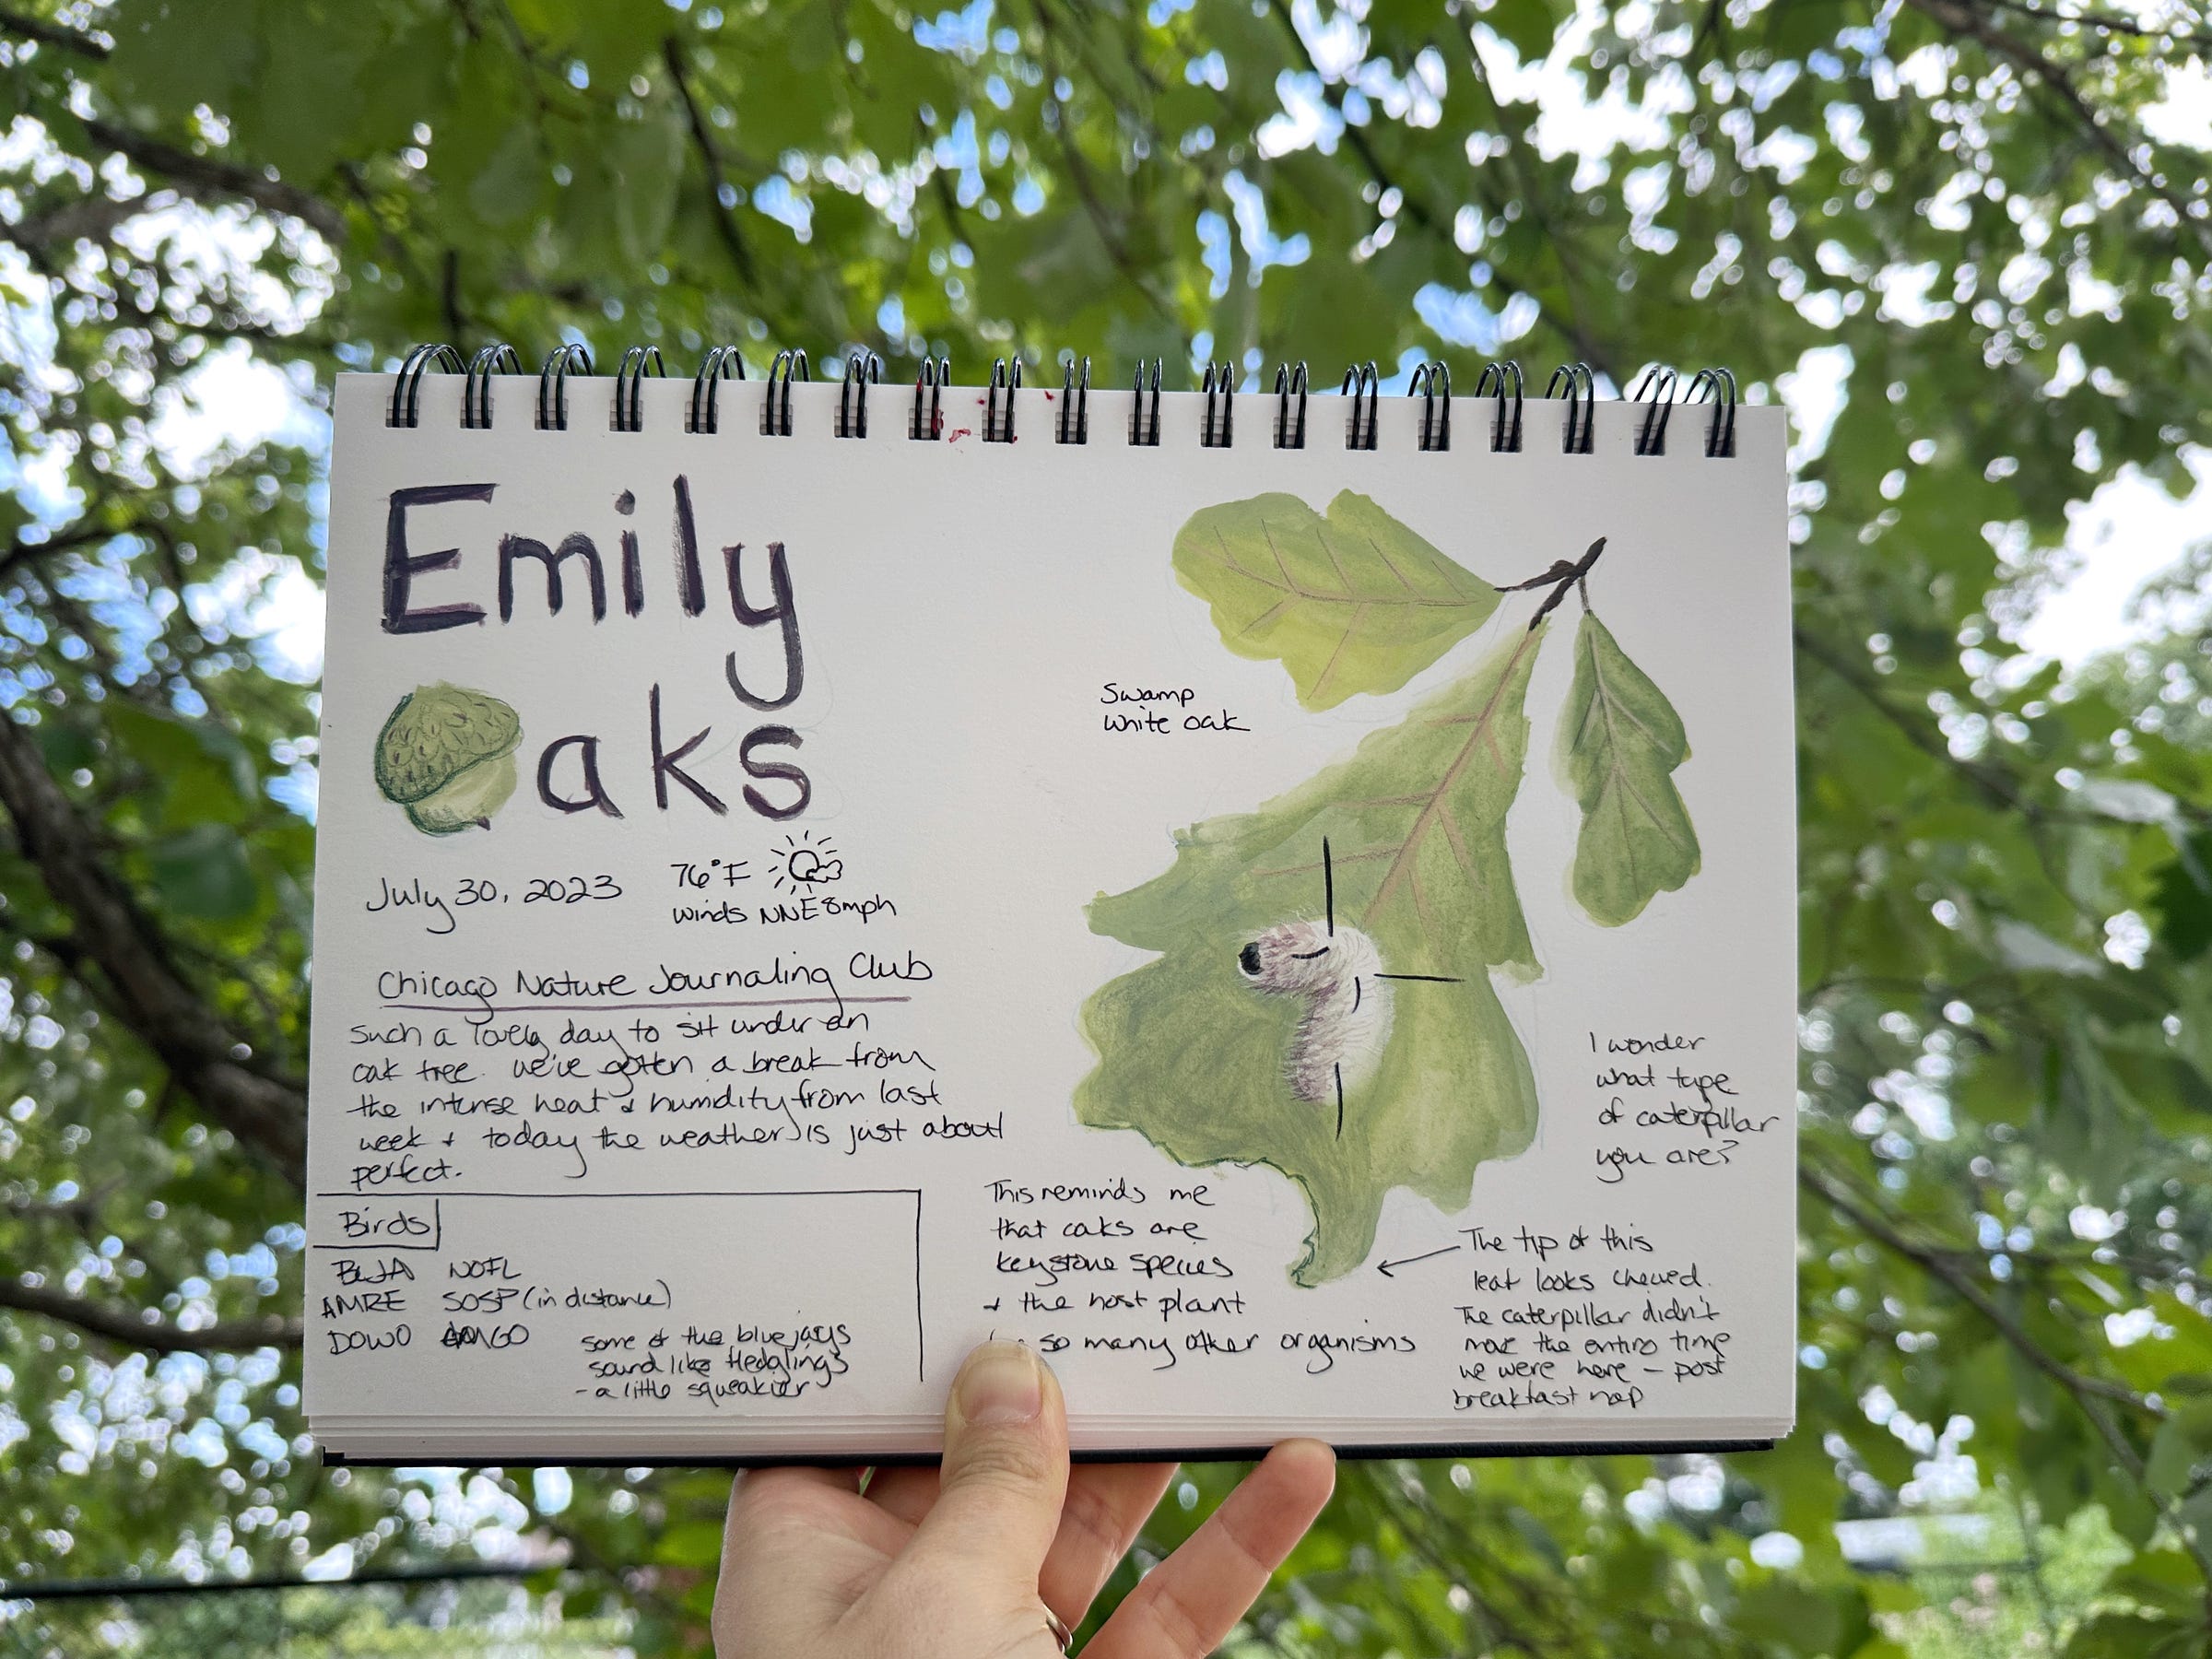 Emily
aks
July 30, 2023
76°F
winds NNE 8mph
Chicago Nature Journaling Club
such a lovely day to sit under an
oak tree. we've gotten a break from
the intense heat & humidity from last
week & today the weather is just about
perfect.
Birds
BLJA NOFL
AMRE SOSP (in distance)
DOWO AMGO
some of the blue jays
sound like fledglings
- a little squeakier
Swamp
white oak
I wonder
what type
of caterpillar
you are?
This reminds me
that oaks are
keystone species
& the host plant
so many other organisms
The tip of this
leaf looks chewed.
The caterpillar didn't
move the entire time
we were here - post
breakfast nap